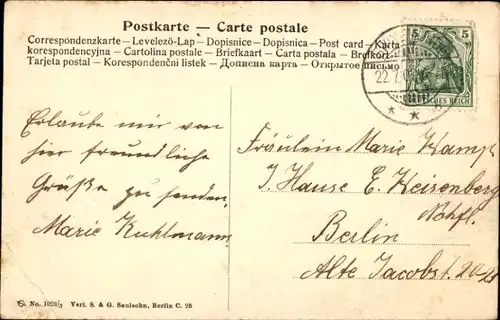 Postkarte — Carte postale
Correspondenzkarte – Levelező-Lap – Dopisnice – Dopisnica – Post card – Karta
korespondencyjna – Cartolina postale – Briefkaart – Carta postala – Brefkort
Tarjeta postal – Korespondenčni listek – Дописна карта – Открытое письмо
5 5
22.7
DEUTSCHES REICH
Erlaube mir von
hier freundliche
Grüße zu senden.
Marie Kuhlmann
Fräulein Marie Kamp
J. Hause C. Heisenberg
Nchfl.
Berlin
Alte Jacobst. 20
No. 1023/3 Verl. S. & G. Saulsohn, Berlin C. 25